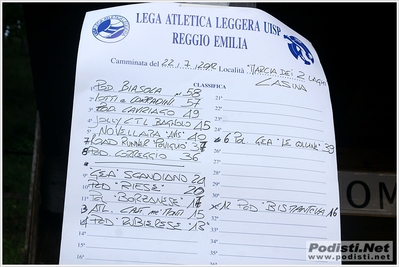 LEGA ATLETICA LEGGERA UISP
REGGIO EMILIA
Camminata del 22.7.2012 Località "MARCIA DEI 2 LAGHI
CASINA
CLASSIFICA
1 POD BIASOLA N 58
2 NOTTI e CORRADINI 57
POD. CAVRIAGO 49
JOLLY CTL BAGNOLO 45
NOVELLARA "AVIS" 40
7 ROAD RUNNER POVIGLIO 37
8 POD. CORREGGIO 36
9 "GEA" SCANDIANO 21
10 POD "RIESE" 20
11 POL "BORZANESE" 17
3 ATL. CAST. NE' MONTI 15
4 POD "RUBIERESE" 13
14°
15°
16°
17°
21°
22°
23°
24°
25°
x 6 POL GEA "LE COLLINE" 39
27°
28°
29°
30°
31°
x 12 POD "BISMANTOVA 16
33°
34°
35°
36°
www.Podisti.Net
Podisti.Net